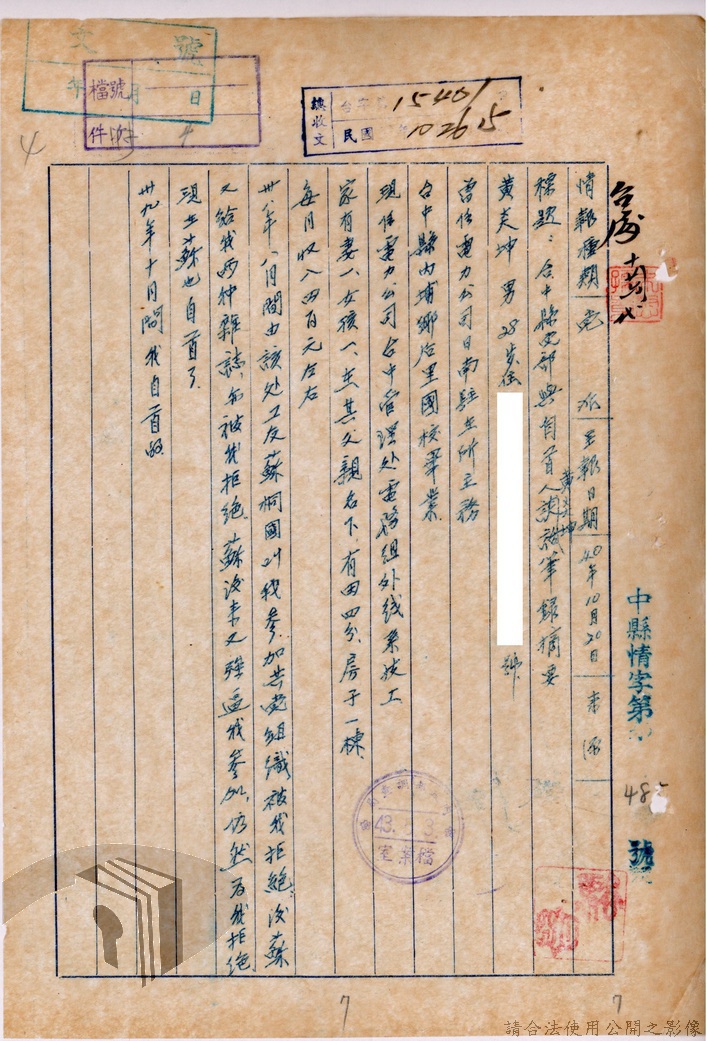 文 號
年 月 日
檔號
件次
4
4
總收文
台字 15401 號
民國 102615
台處
中縣情字第
485
號
情報種類 党派 呈報日期 40年10月20日 來源
標題：台中縣党部與自首人黃炎坤談話筆錄摘要
黃炎坤 男 28歲住 號
曾任電力公司日南駐在所主務
台中縣內埔鄉后里國校畢業
現任電力公司台中管理处電務組外线系技工
家有妻一、女孩一、在其父親名下、有田四分、房子一棟、
每月收入四百元左右
卅八年八月間由該处工友蘇桐國叫我參加共党組織被我拒絕、後蘇
又給我兩种雜誌、亦被我拒絕、蘇後來又強逼我參加、仍然为我拒绝
現在蘇也自首了、
卅九年十月間我自首的
43. 3.
檔案室
7
7
請合法使用公開之影像